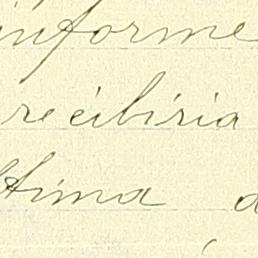 informe
recibiria
ltima a